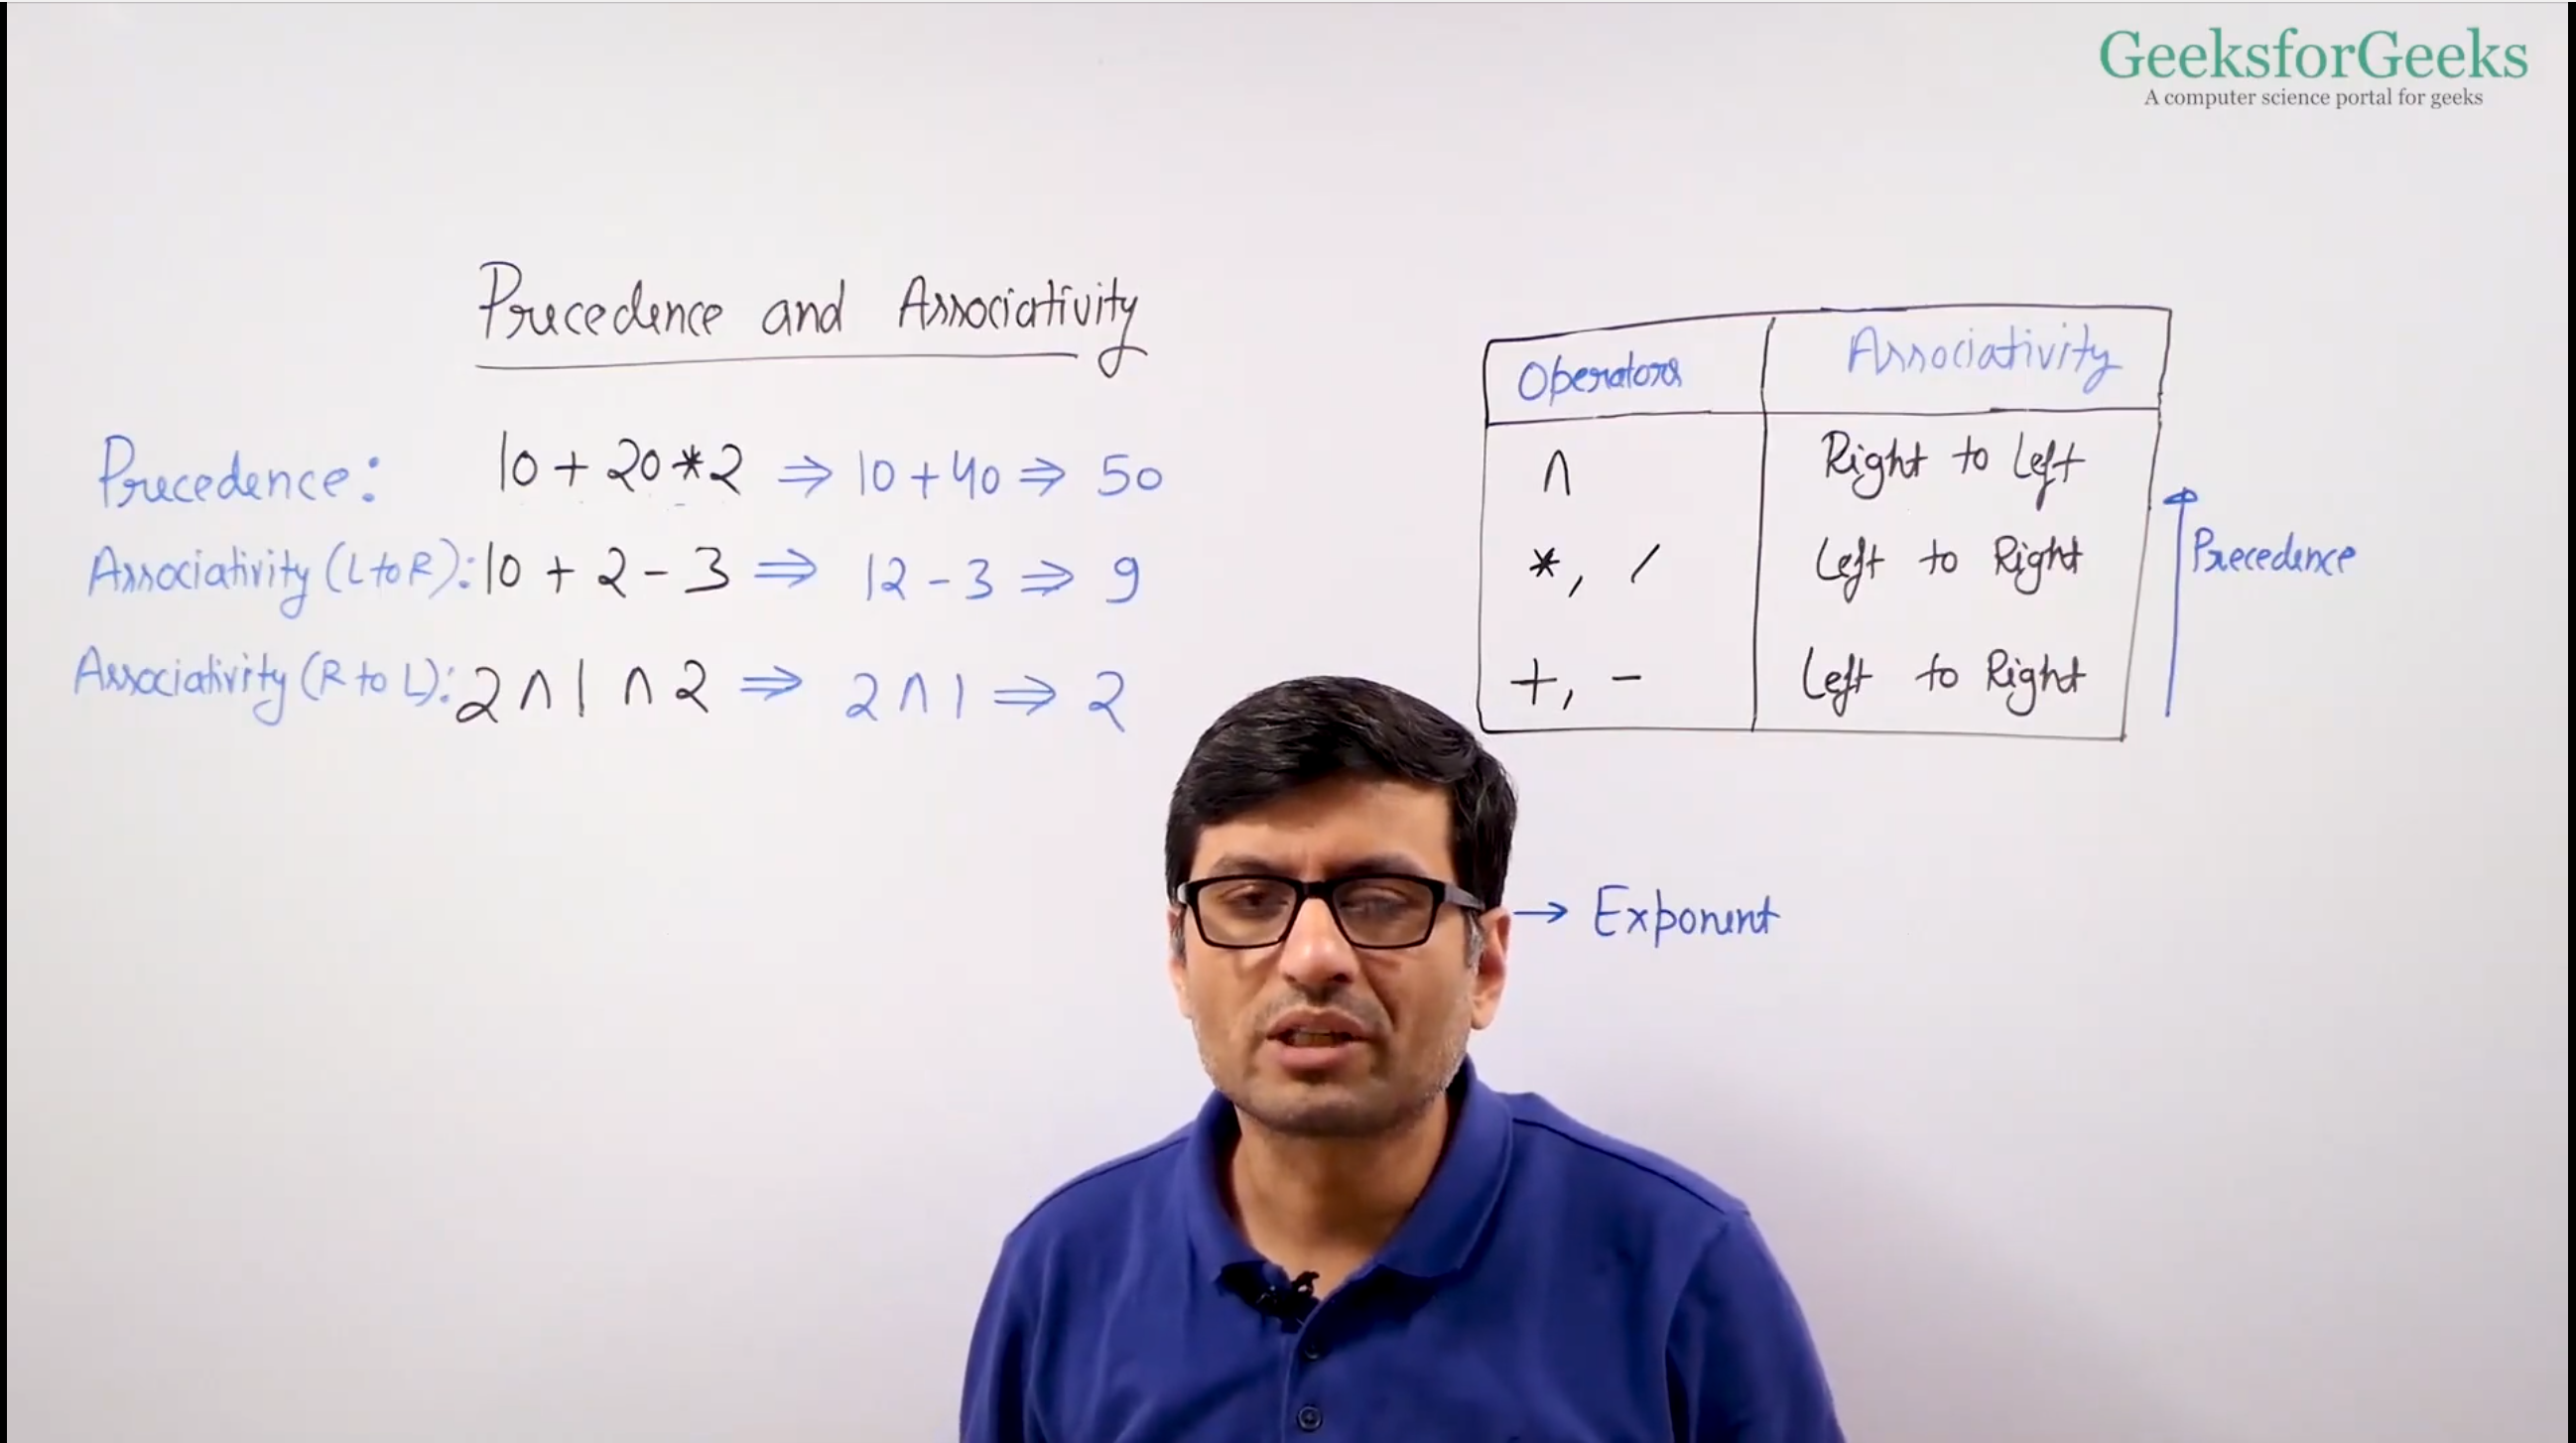 GeeksforGeeks
A computer science portal for geeks
Precedence and Associativity
Precedence: 10 + 20 * 2 ⇒ 10 + 40 ⇒ 50
Associativity (L to R): 10 + 2 - 3 ⇒ 12 - 3 ⇒ 9
Associativity (R to L): 2 ∧ 1 ∧ 2 ⇒ 2 ∧ 1 ⇒ 2
Operators Associativity
∧ Right to Left
*, / Left to Right
+, - Left to Right
Precedence
→ Exponent